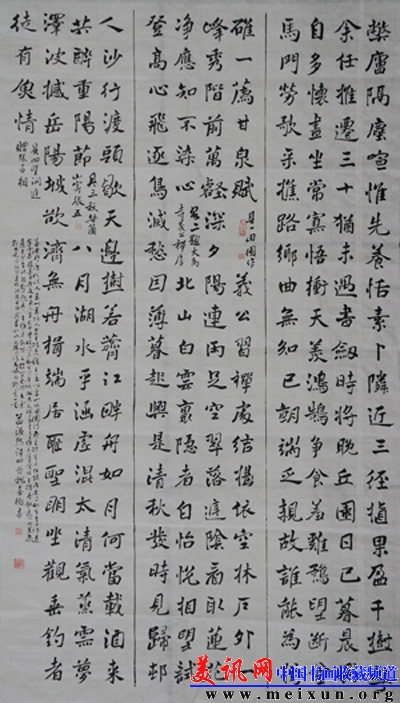 弊廬隔塵喧惟先養恬素卜隣近三徑植果盈千樹粤
余任推遷三十猶未遇書劍時將晚丘園日已暮晨興
自多懷晝坐常寡悟衝天羨鴻鵠爭食羞雞鶩望斷金
馬門勞歌采樵路鄉曲無知己朝端乏親故誰能為揚
雄一薦甘泉賦 其一田園作 義公習禪處結構依空林戶外一
峰秀階前萬壑深夕陽連雨足空翠落庭陰看取蓮花
淨應知不染心 其二題大禹寺義公禪房 北山白雲裏隱者自怡悅相望試
登高心飛逐鳥滅愁因薄暮起興是清秋發時見歸邨
人沙行渡頭歇天邊樹若薺江畔舟如月何當載酒來
共醉重陽節 其三秋登蘭山寄張五 八月湖水平涵虛混太清氣蒸雲夢
澤波撼岳陽城欲濟無舟楫端居恥聖明坐觀垂釣者
徒有魚情 其四望洞庭贈張丞相
美讯网 中国书画收藏频道
www.meixun.org